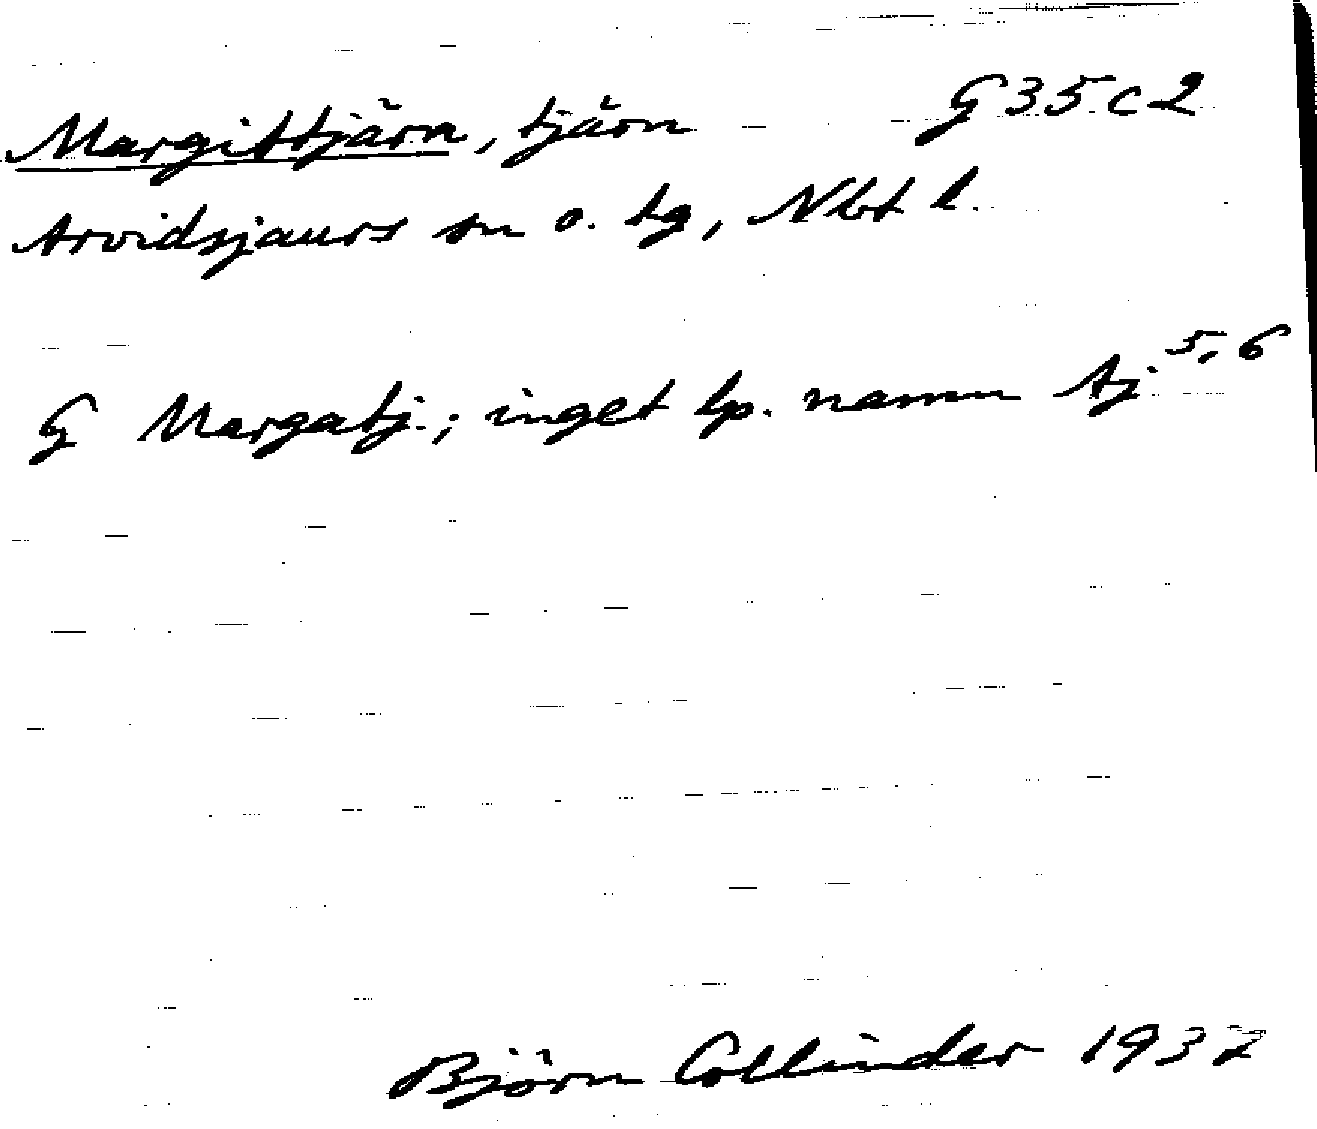 Margittjärn, tjärn G 35 c 2
Arvidsjaurs sn o. tg, Nbt l.
G Margatj.; inget lp. namn Aj. 5, 6
Björn Collinder 1937